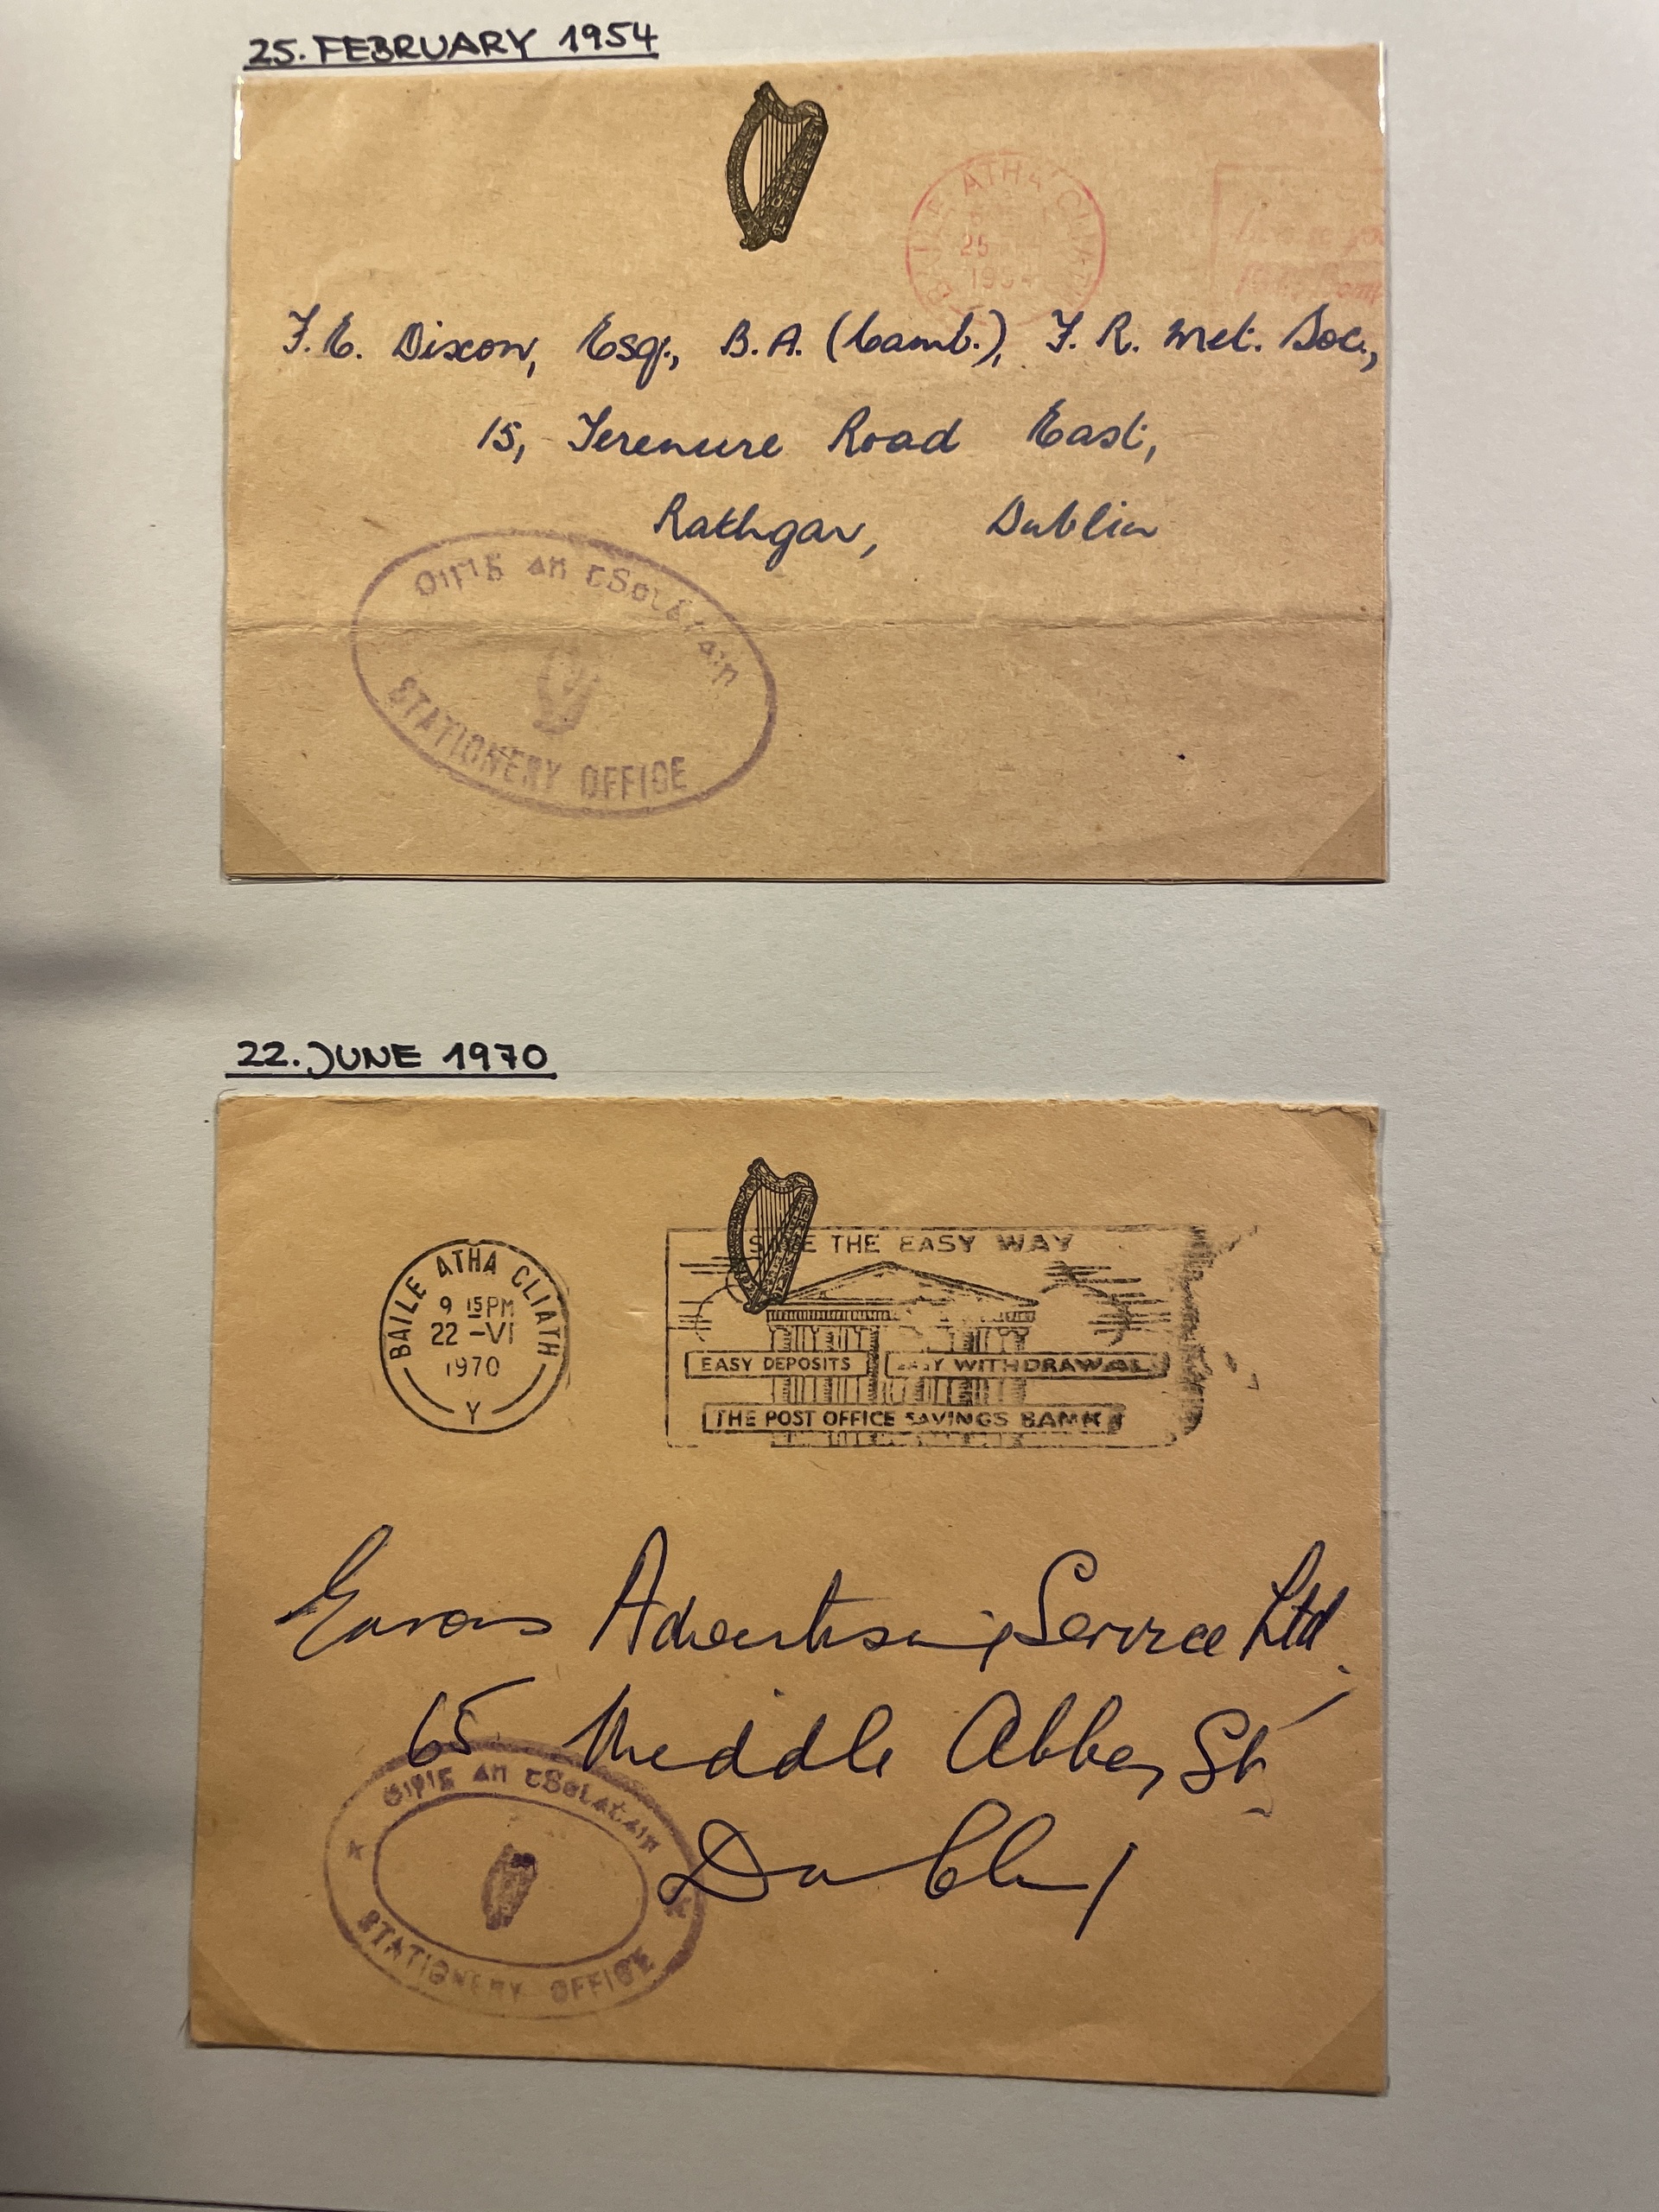 25. FEBRUARY 1954
BAILE ATHA CLIATH
25
1954
F. E. Dixon, Esq., B.A. (Camb.), F. R. Met. Soc.,
15, Terenure Road East,
Rathgar, Dublin
Oifig an tSoláṫair
STATIONERY OFFICE
22. JUNE 1970
BAILE ATHA CLIATH
9 15PM
22 -VI
1970
Y
SAVE THE EASY WAY
EASY DEPOSITS EASY WITHDRAWAL
THE POST OFFICE SAVINGS BANK
Advertising Service Ltd.,
65 Middle Abbey St
Dublin 1
Oifig an tSoláṫair
STATIONERY OFFICE